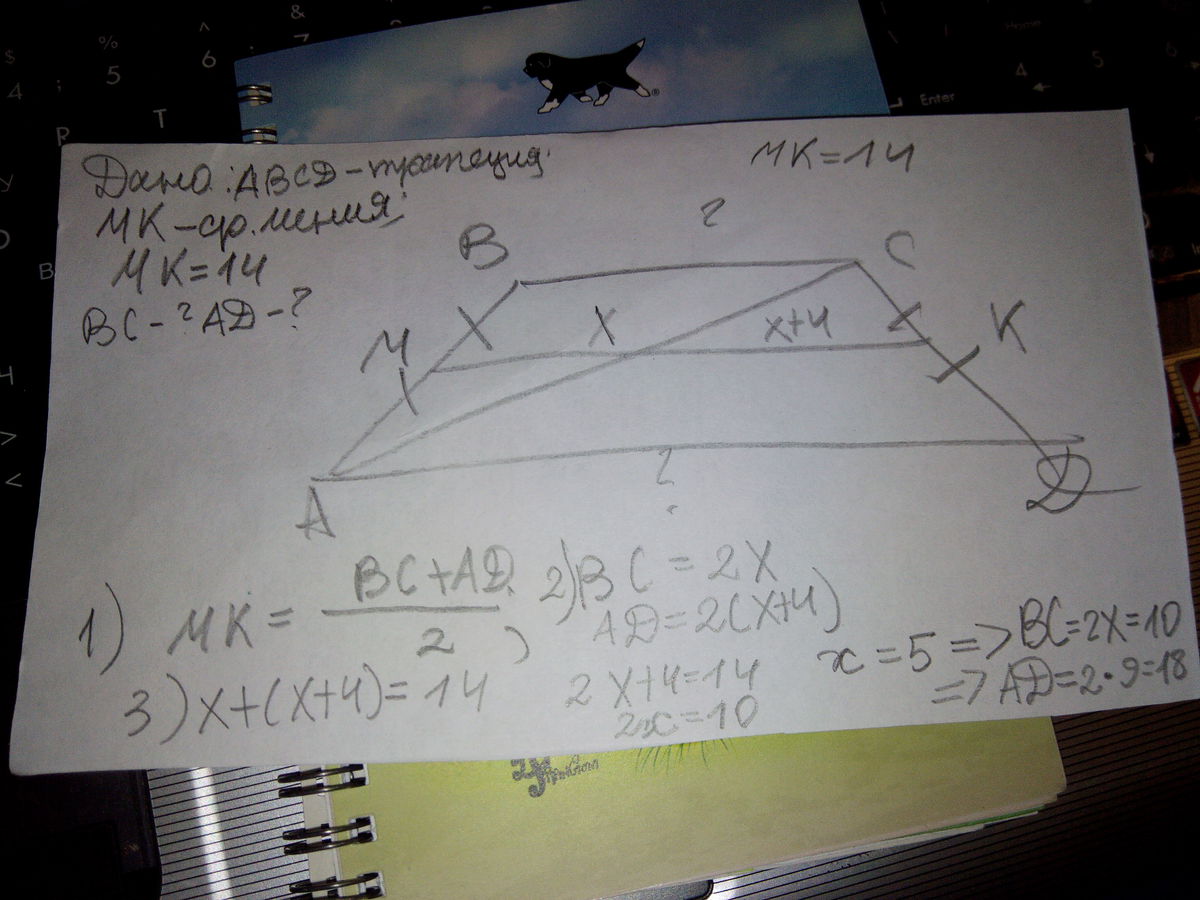 Дано: ABCD - трапеция.
MK - ср. линия;
MK = 14
BC - ? AD - ?
MK = 14
?
B
C
M
X
X+4
K
A
?
D
1) MK = (BC + AD) / 2,
2) BC = 2X
AD = 2(X+4)
3) X+(X+4) = 14
2X+4 = 14
2x = 10
x = 5 => BC = 2X = 10
=> AD = 2·9 = 18
$
4
%
5
^
6
&
7
R
T
Home
4
5
6
Enter